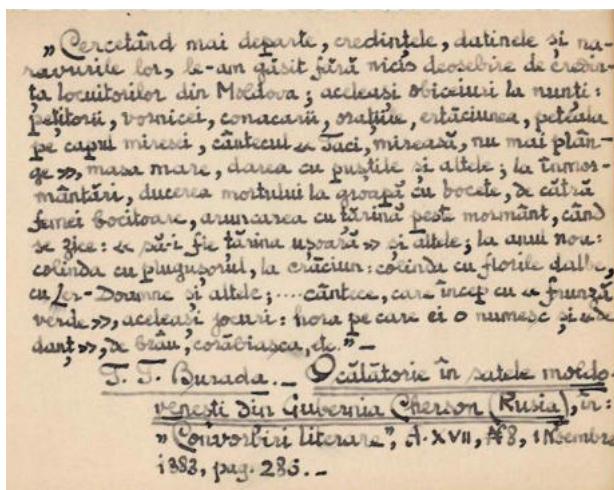 „Cercetând mai departe, credințele, datinele și na-
ravurile lor, le-am găsit fără nicio deosebire de credin-
ța locuitorilor din Moldova; aceleași obiceiuri la nunți:
pețitorii, vornicei, conacarii, orațiile, ertăciunea, peteala
pe capul miresei, cântecul « Taci, mireasă, nu mai plân-
ge », masa mare, darea cu puștile și altele; la înmor-
mântări, ducerea mortului la groapă cu bocete, de cătră
femei bocitoare, aruncarea cu țărină peste mormânt, când
se zice: « să-i fie țărina ușoară » și altele; la anul nou:
colinda cu plugușorul, la crăciun: colinda cu florile dalbe,
cu Ler-Doamne și altele;.... cântece, care încep cu « frunză
verde », aceleași jocuri: hora pe care ei o numesc și « de
danț », de brâu, corăbiasca, etc.” —
T. T. Burada. — O călătorie în satele moldo-
venești din Gubernia Cherson (Rusia), în:
„Convorbiri literare”, A. XVII, № 8, 1 Noembre
1883, pag. 283. —